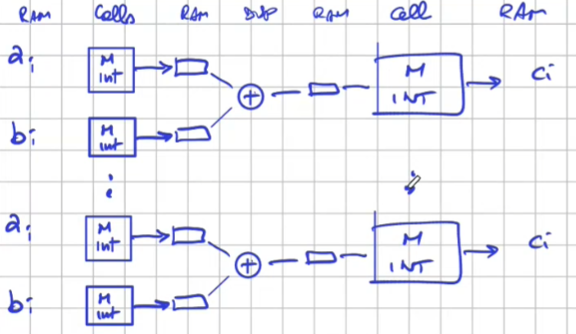 RAM Cells RAM DSP RAM Cell RAM
ai M Int + M INT ci
bi M Int
ai M Int + M INT ci
bi M Int